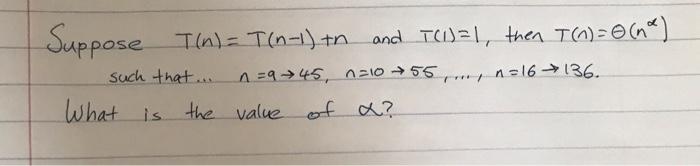 Suppose T(n) = T(n-1) +n and T(1)=1, then T(n)=Θ(n^α)
such that... n=9→45, n=10→55,..., n=16→136.
What is the value of α?